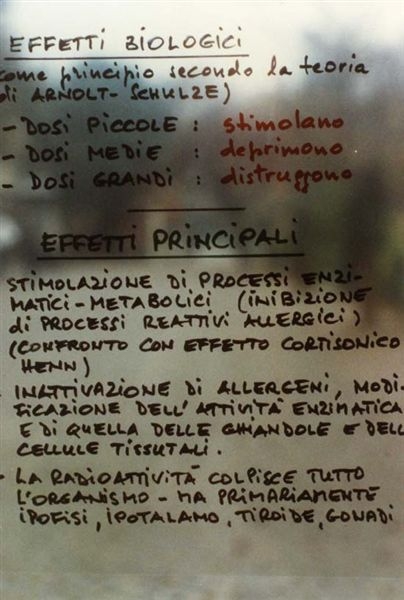 EFFETTI BIOLOGICI
come principio secondo la teoria
di ARNOLT-SCHULZE)
- DOSI PICCOLE : stimolano
- DOSI MEDIE : deprimono
- DOSI GRANDI : distruggono
EFFETTI PRINCIPALI
STIMOLAZIONE DI PROCESSI ENZI-
MATICI-METABOLICI (INIBIZIONE
di PROCESSI REATTIVI ALLERGICI)
(CONFRONTO CON EFFETTO CORTISONICO
HENN)
- INATTIVAZIONE DI ALLERGENI, MODI-
FICAZIONE DELL'ATTIVITÀ ENZIMATICA
E DI QUELLA DELLE GHIANDOLE E DELL
CELLULE TISSUTALI.
- LA RADIOATTIVITÀ COLPISCE TUTTO
L'ORGANISMO - MA PRIMARIAMENTE
IPOFISI, IPOTALAMO, TIROIDE, GONADI